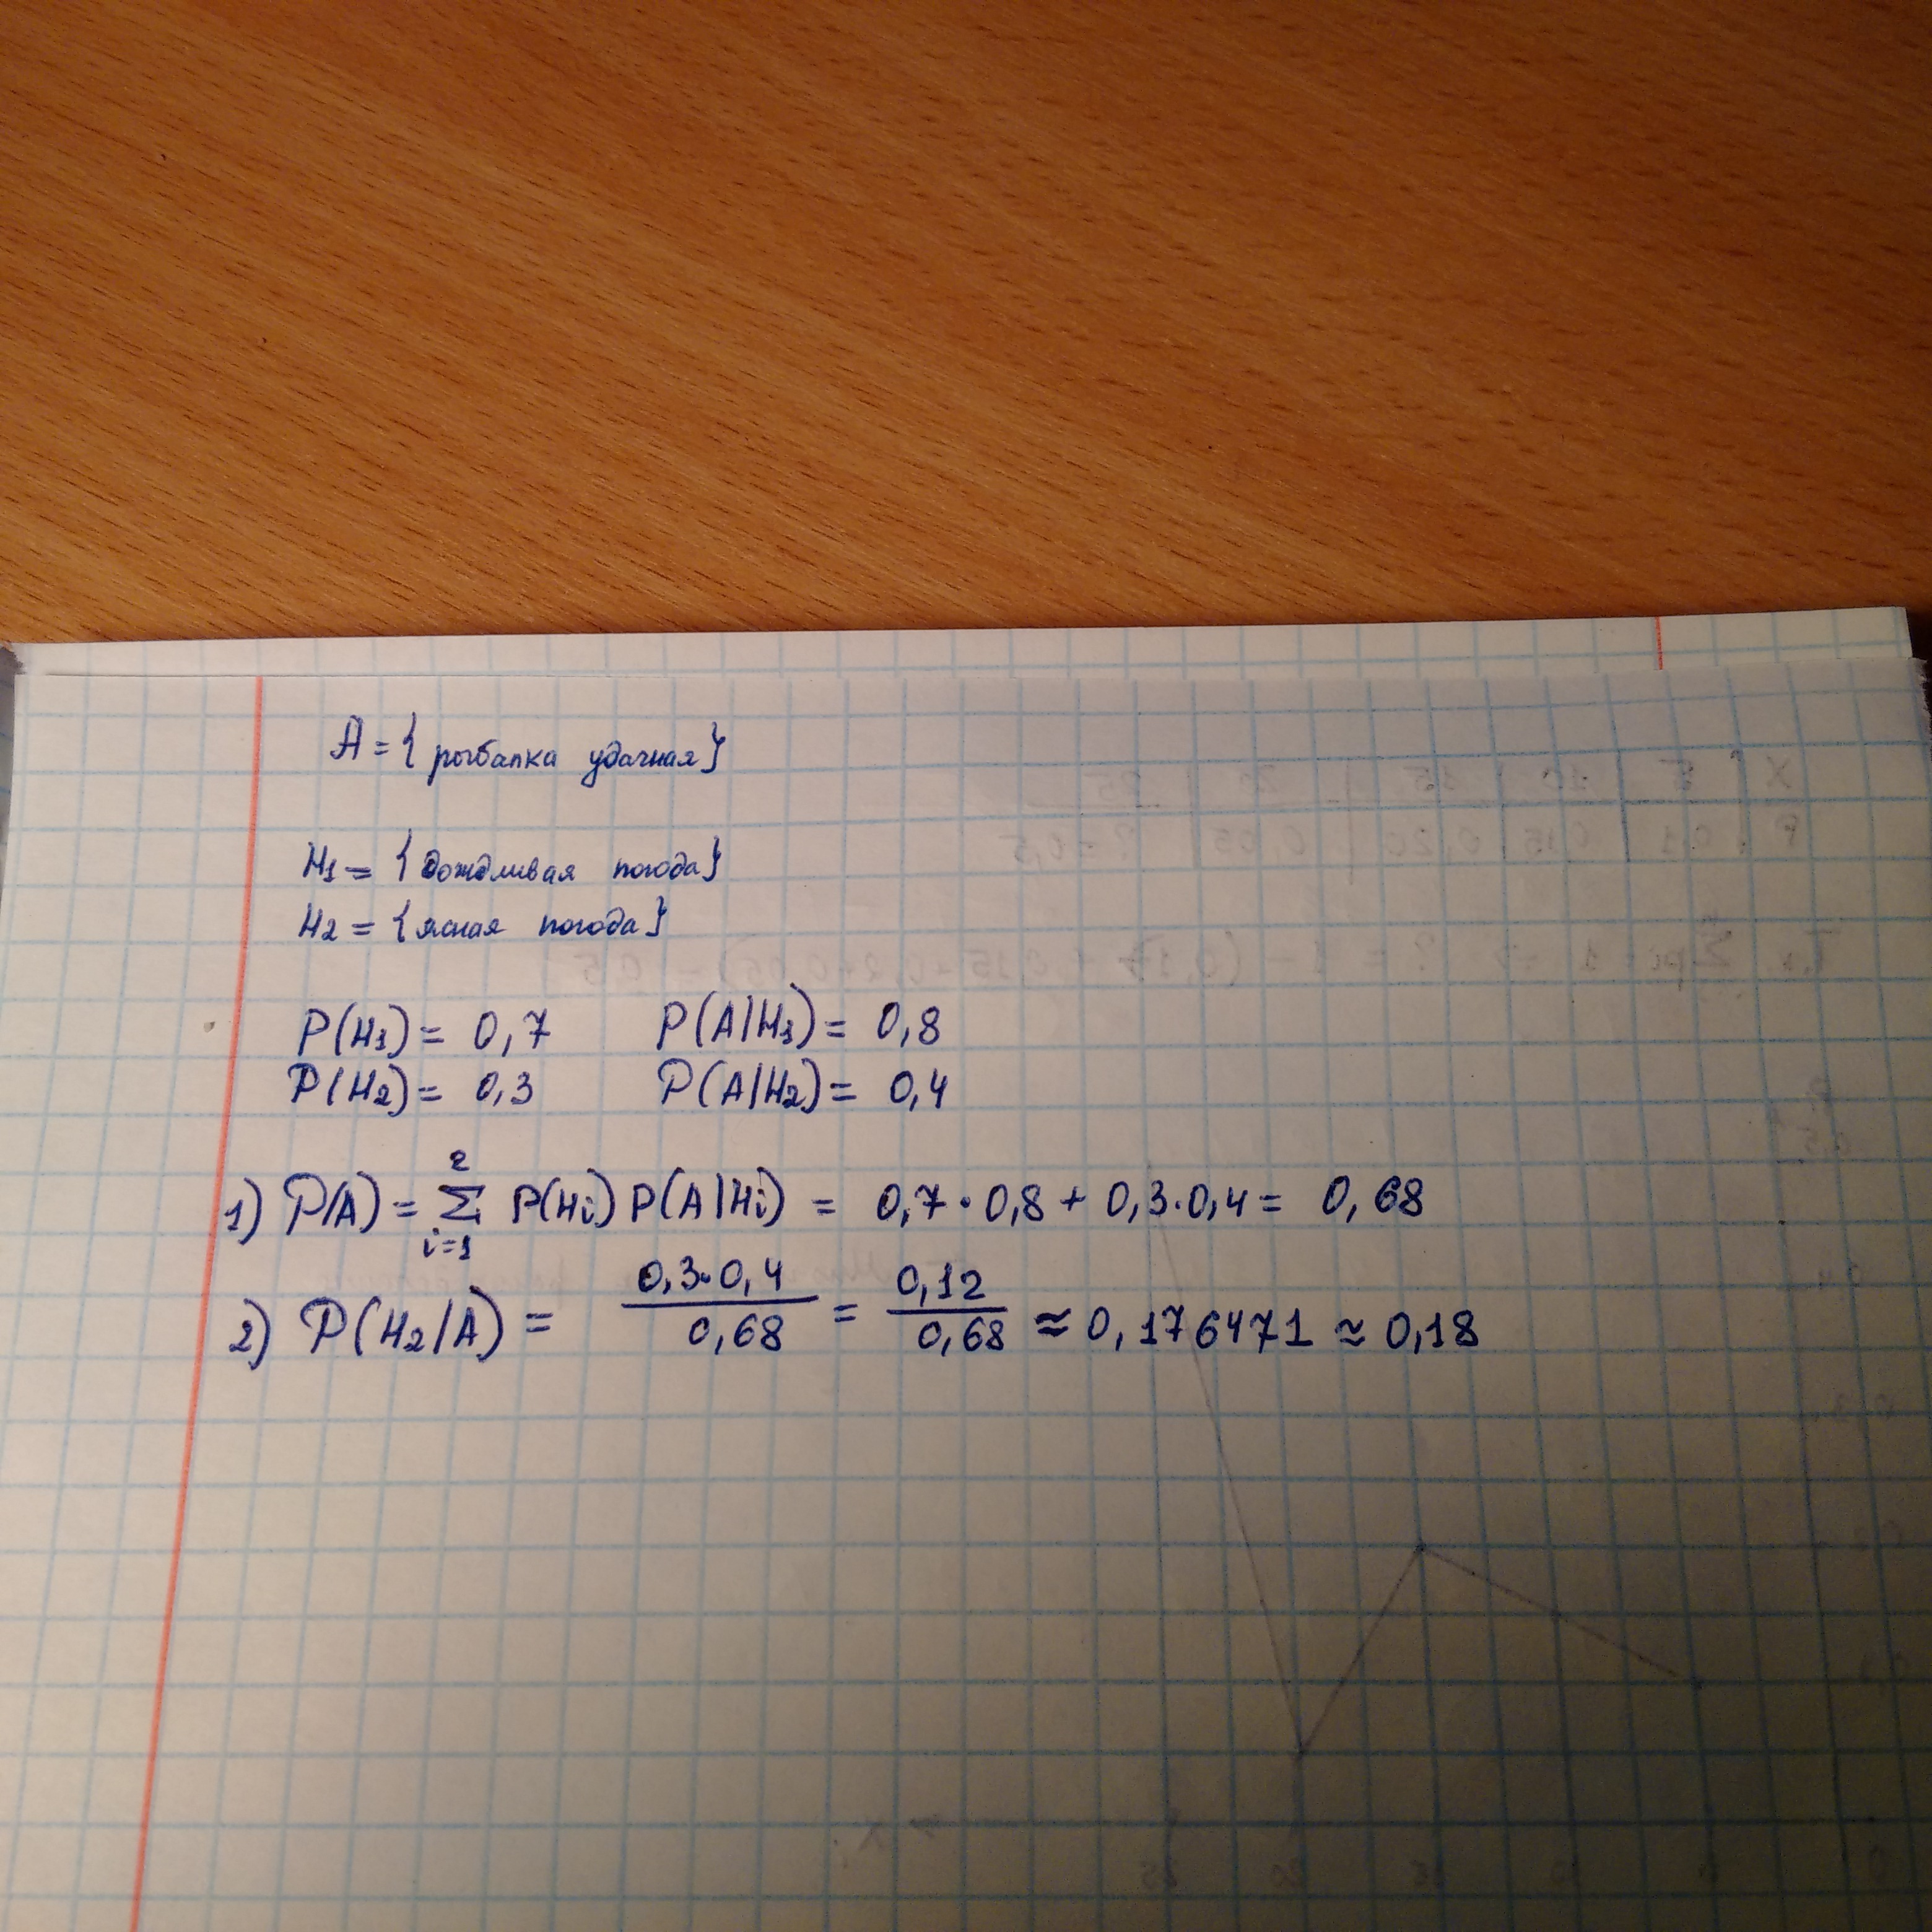 A = { рыбалка удачная}
H1 = { дождливая погода}
H2 = { ясная погода}
P(H1) = 0,7 P(A|H1) = 0,8
P(H2) = 0,3 P(A|H2) = 0,4
1) P(A) = ∑ᵢ₌₁² P(Hi) P(A|Hi) = 0,7 · 0,8 + 0,3 · 0,4 = 0,68
2) P(H2|A) = 0,3·0,4/0,68 = 0,12/0,68 ≈ 0,176471 ≈ 0,18